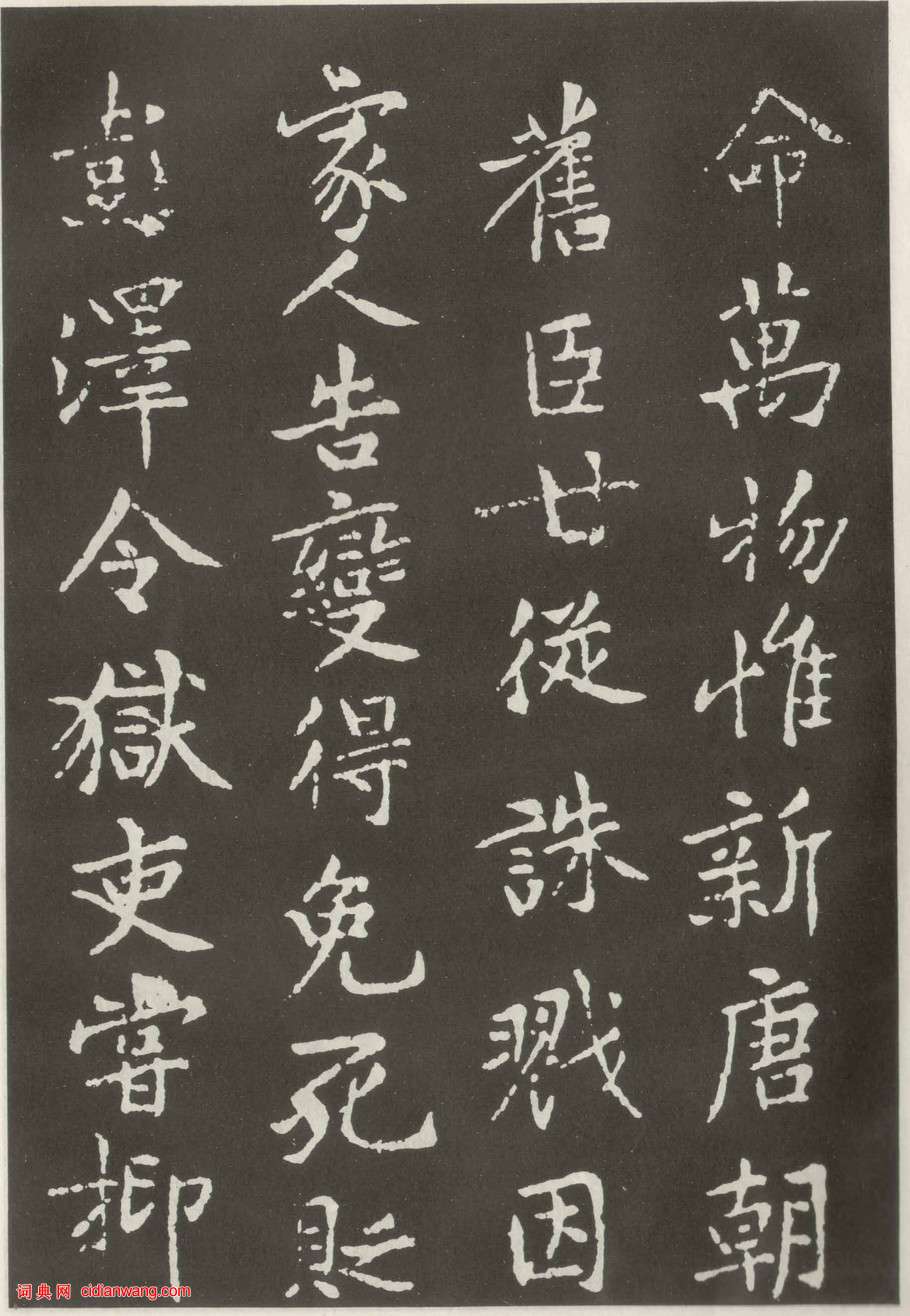 命萬物惟新唐朝
舊臣甘從誅戮因
家人告變得免死貶
彭澤令獄吏嘗抑
词典网 cidianwang.com